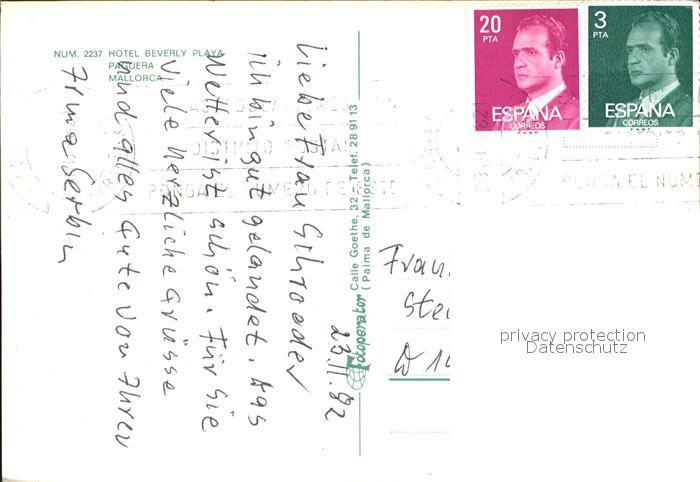 NUM. 2237 HOTEL BEVERLY PLAYA
PAGUERA
MALLORCA
23.11.82
Liebe Frau Schroeder
Ich bin gut gelandet. Das
Wetter ist schön. Für Sie
Viele herzliche Grüsse
und alles Gute von Ihrer
Irma
Fotoperator Calle Goethe, 32 - Telef. 28 91 13
(Palma de Mallorca)
20
PTA
ESPAÑA
CORREOS
3
PTA
ESPAÑA
CORREOS
DISTRITO POSTAL
PONGA EL NUMERO DE
PONGA EL NUM
Frau
Stei
D 1
privacy protection
Datenschutz